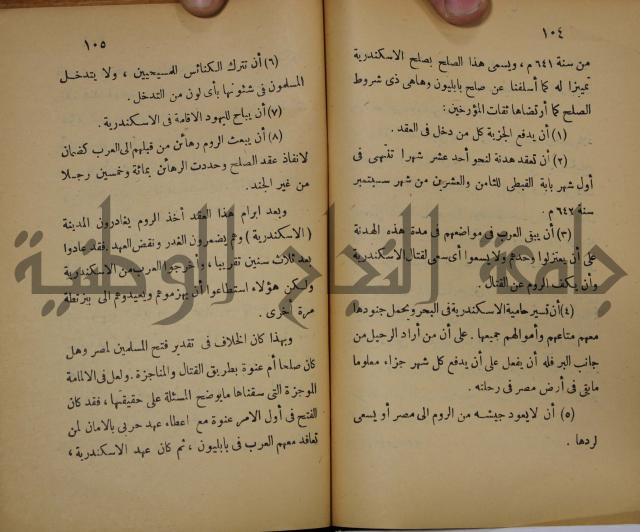 ١٠٤
من سنة ٦٤١ م ، ويسمى هذا الصلح بصلح الاسكندرية
تمييزا له كما أسلفنا عن صلح بابليون وهاهى ذى شروط
الصلح كما أرتضاها ثقات المؤرخين :
(١) أن يدفع الجزية كل من دخل فى العقد .
(٢) أن تعقد هدنة لنحو أحد عشر شهرا تنتهى فى
أول شهر بابة القبطى للثامن والعشرين من شهر سبتمبر
سنة ٦٤٢ م .
(٣) أن يبقى العرب فى مواضعهم فى مدة هذه الهدنة
على أن يعتزلوا وحدهم ولا يسعوا أى سعى لقتال الاسكندرية
وأن يكف الروم عن القتال .
(٤) أن تسير حامية الاسكندرية فى البحر ويحمل جنودها
معهم متاعهم وأموالهم جميعها . على أن من أراد الرحيل من
جانب البر فله أن يفعل على أن يدفع كل شهر جزاء معلوما
مابقى فى أرض مصر فى رحلته .
(٥) أن لا يعود جيشه من الروم الى مصر أو يسعى
لردها .
١٠٥
(٦) أن تترك الكنائس للمسيحيين ، ولا يتدخل
المسلمون فى شئونها بأى لون من التدخل .
(٧) أن يباح لليهود الاقامة فى الاسكندرية .
(٨) أن يبعث الروم رهائن من قبلهم الى العرب كضمان
لانفاذ عقد الصلح وحددت الرهائن بمائة وخمسين رجلا
من غير الجند .
وبعد ابرام هذا العقد أخذ الروم يغادرون المدينة
( الاسكندرية ) وهم يضمرون الغدر ونقض العهد . فقد عادوا
بعد ثلاث سنين تقريبا ، وأخرجوا العرب من الاسكندرية
ولكن هؤلاء استطاعوا أن يهزموهم ويعيدوهم الى بيزنطة
مرة أخرى .
وبهذا كان الخلاف فى تقدير فتح المسلمين لمصر وهل
كان صلحا أم عنوة بطريق القتال والمناجزة . ولعل فى الالمامة
الموجزة التى سقناها مايوضح المسئلة على حقيقتها ، فقد كان
الفتح فى أول الامر عنوة مع اعطاء عهد حربى بالامان لمن
تعاقد معهم العرب فى بابليون ، ثم كان عهد الاسكندرية ،
جامعة النجاح الوطنية